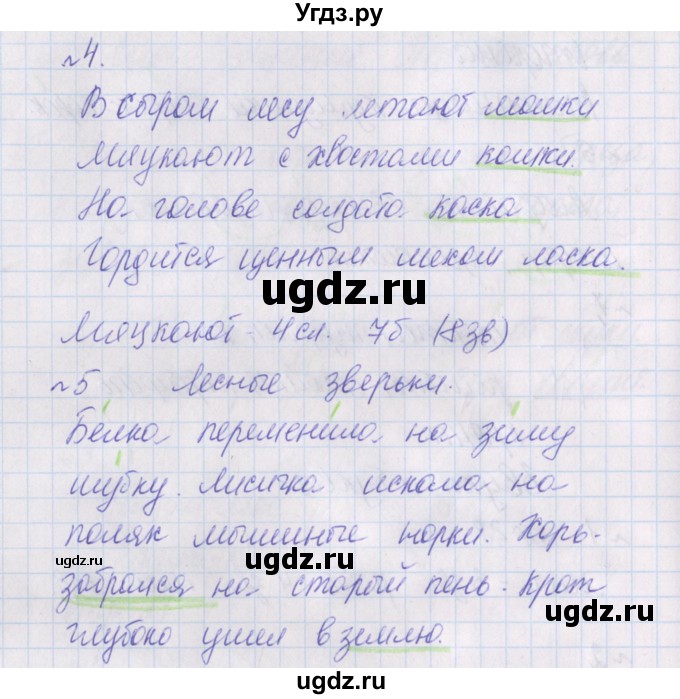 Угдз.ру
№4.
В сыром лесу летают мошки
Мяукают с хвостами кошки.
На голове солдата каска
Гордится ценным мехом ласка.
ugdz.ru
ugdz.ru
Мяукают - 4 сл. 7б (8 зв)
№5 Лесные зверьки.
Белка переменила на зиму
шубку. Лисичка искала на
полях мышиные норки. Хорь
ugdz.ru
ugdz.ru
забрался на старый пень. Крот
ugdz.ru
глубоко ушел в землю.
ugdz.ru
ugdz.ru